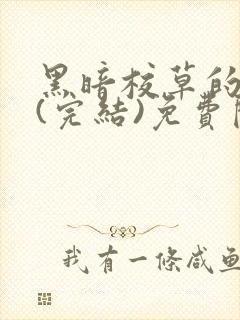 黑暗校草的
(完結)免費
我有一條咸魚